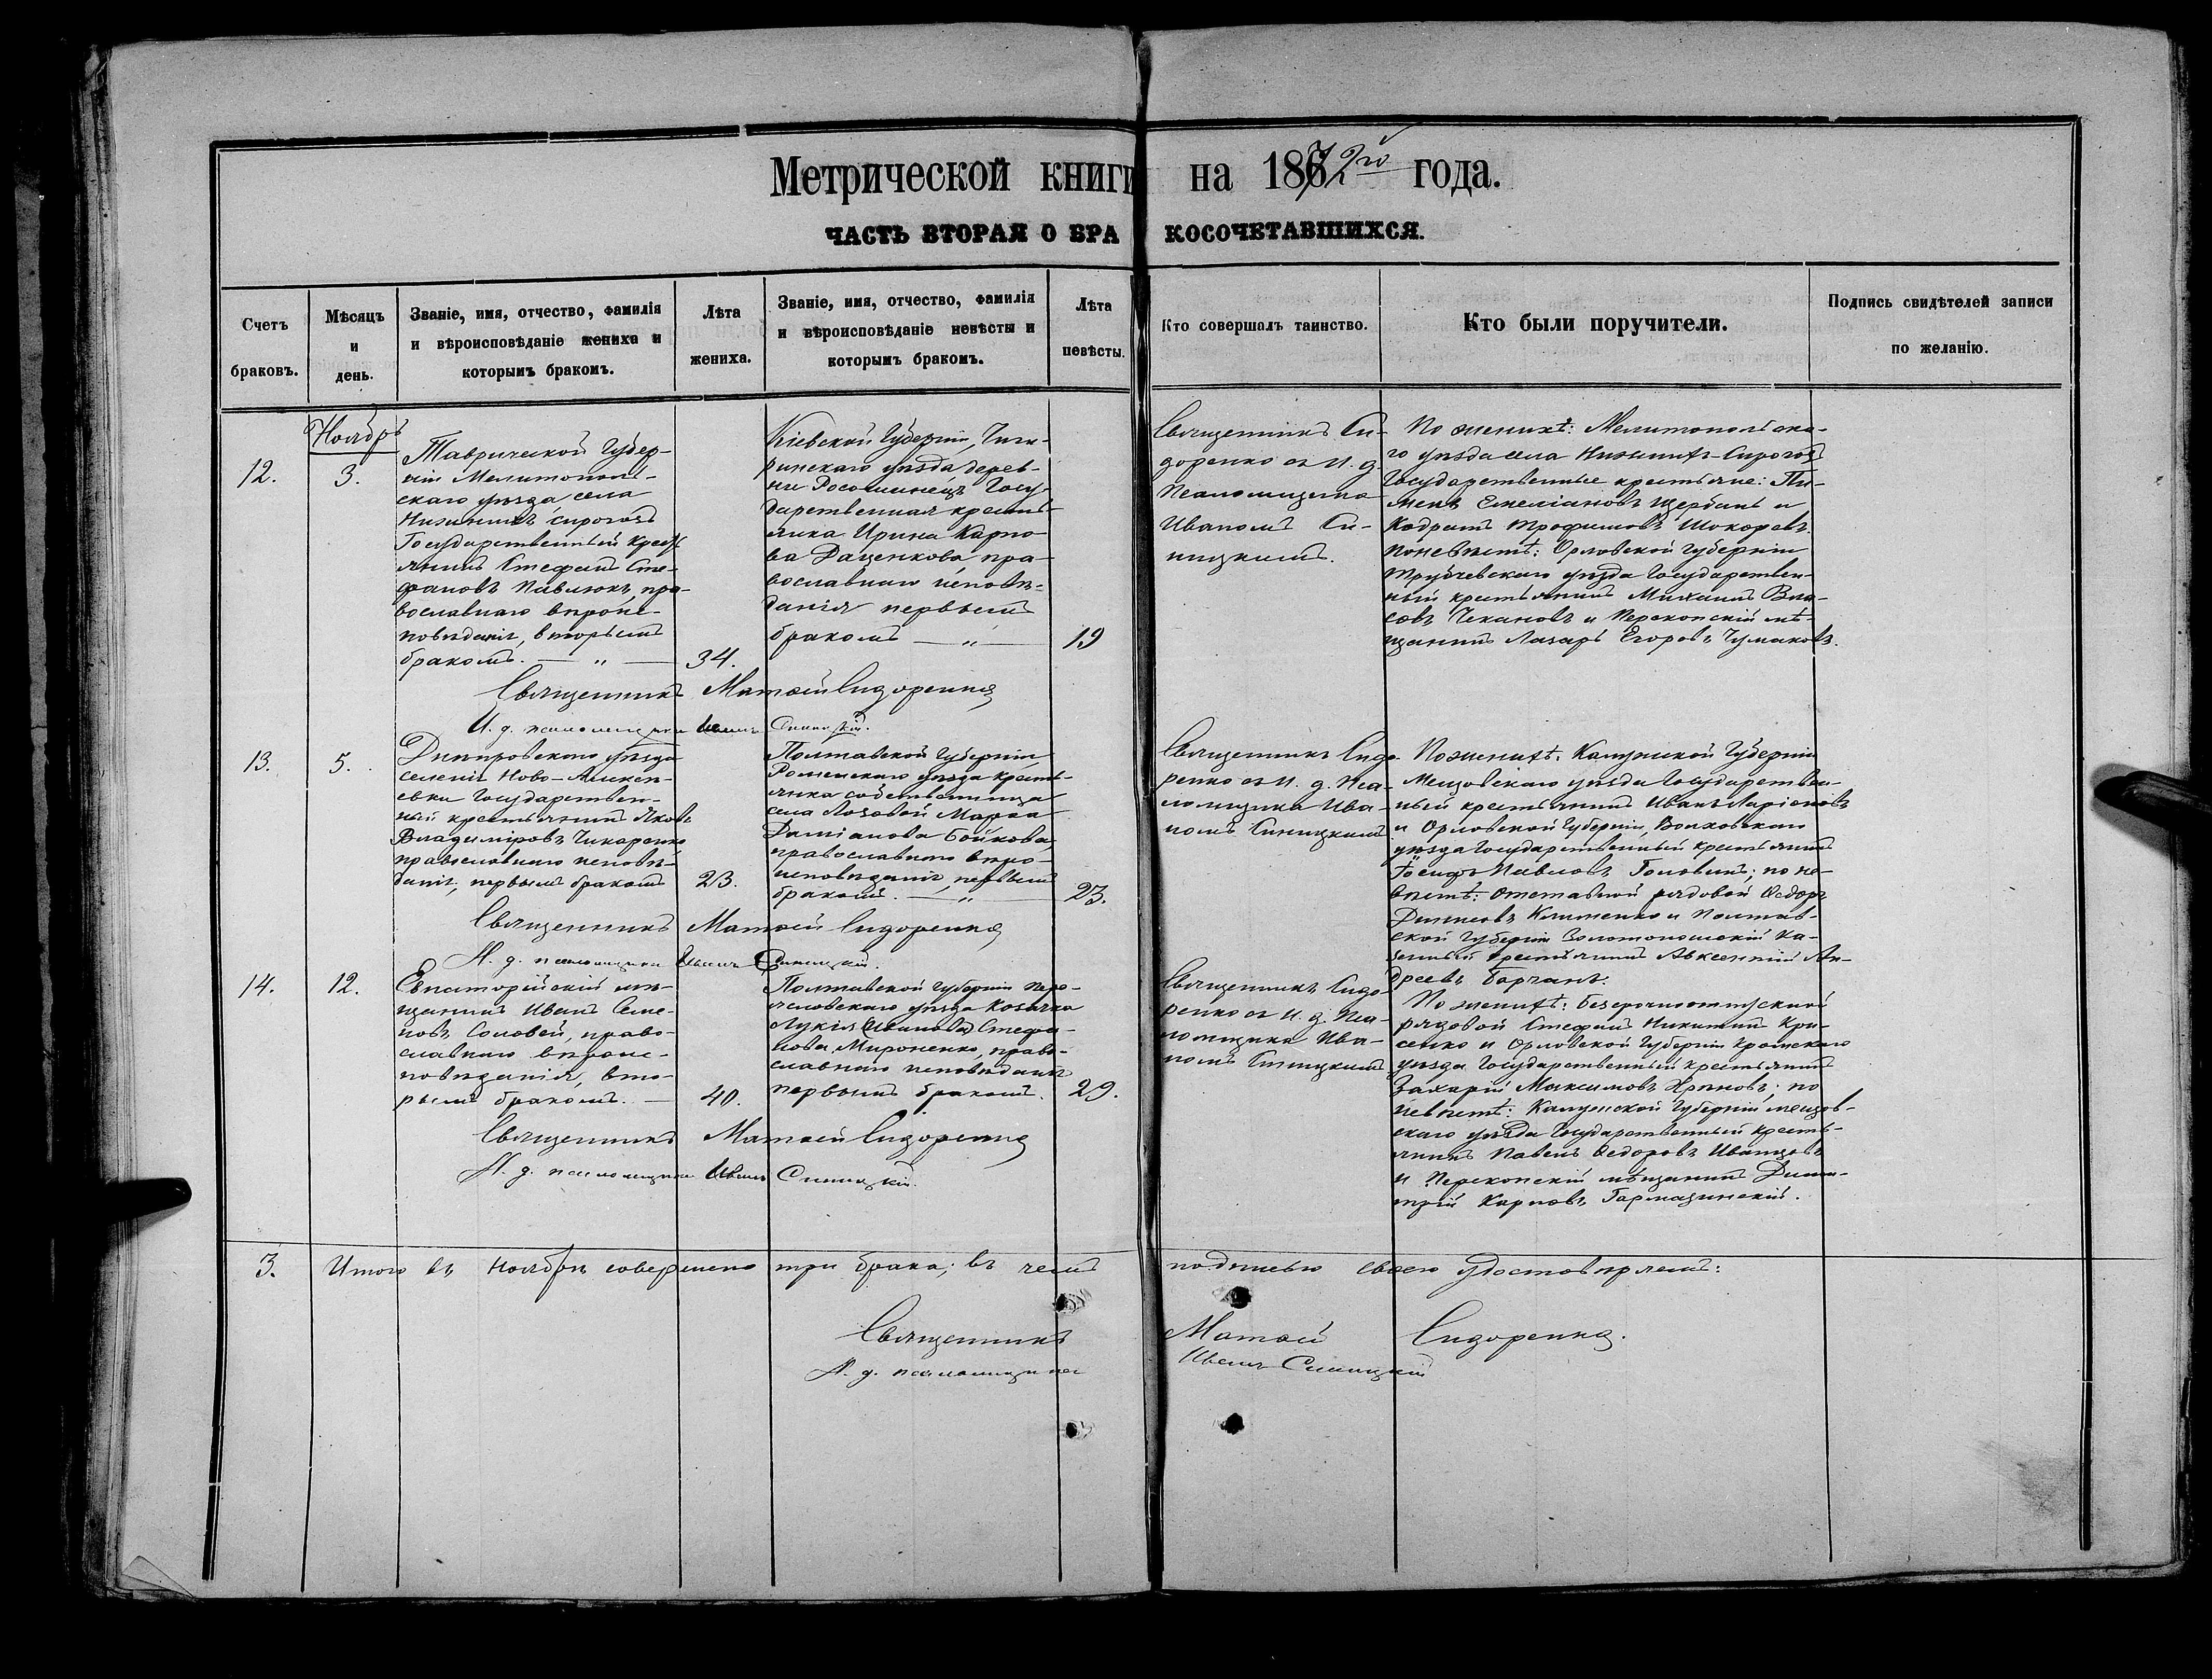 Метрической книги на 1872го года.
ЧАСТЬ ВТОРАЯ О БРАКОСОЧЕТАВШИХСЯ.
Счетъ браковъ.
Мѣсяцъ и день.
Званіе, имя, отчество, фамилія
и вѣроисповѣданіе жениха и
которымъ бракомъ.
Лѣта жениха.
Званіе, имя, отчество, фамилія
и вѣроисповѣданіе невѣсты и
которымъ бракомъ.
Лѣта невѣсты.
Кто совершалъ таинство.
Кто были поручители.
Подпись свидѣтелей записи
по желанію.
Ноябрь
12.
3.
Таврической Губер-
ніи Мелитополь-
скаго уѣзда села
Нижнихъ Сирогозъ
Государственный крест
янинъ Стефанъ Сте-
фановъ Павлюкъ, пра-
вославнаго вѣроис-
повѣданія, вторымъ
бракомъ. — „ —
34.
Кіевской Губерніи, Чиги-
ринскаго уѣзда дерев-
ни Росошинецъ Госу-
дарственная кресть-
янка Ирина Карпо
ва Даценкова, пра-
вославнаго исповѣ-
данія первымъ
бракомъ — „ —
19
Священникъ Си-
доренко съ И. д.
Псаломщика
Иваномъ Си-
ницкимъ.
По женихѣ: Мелитопольска-
го уѣзда села Нижнихъ-Сирогозъ
Государственные крестьяне: Пи-
менъ Емеліановъ Щербань и
Кодратъ Трофимовъ Шокоревъ.
по невѣстѣ: Орловской Губерніи
Трубчевскаго уѣзда Государствен-
ный крестьянинъ Михаилъ Вла-
совъ Чекановъ и Перекопскій мѣ-
щанинъ Лазарь Егоровъ Чумаковъ.
Священникъ Матѳей Сидоренко
И. д. псаломщика Иванъ Синицкій.
13.
5.
Днѣпровскаго уѣзда
селенія Ново-Алексѣ-
евки Государствен-
ный крестьянинъ Яковъ
Владиміровъ Чикаренко
православнаго исповѣ-
данія, первымъ бракомъ
23.
Полтавской Губерніи
Роменскаго уѣзда кресть-
янка собственница
села Лозовой Марѳа
Даміанова Бойкова,
православнаго вѣро-
исповѣданія, первымъ
бракомъ. — „ —
23.
Священникъ Сидо-
ренко съ И. д. Пса-
ломщика Ива-
номъ Синицкимъ
По женихѣ: Калужской Губерніи
Мещовскаго уѣзда Государствен-
ный крестьянинъ Иванъ Ларіоновъ
и Орловской Губерніи, Волховскаго
уѣзда Государственный крестьянинъ
Іосифъ Павловъ Головинъ; по не-
вѣстѣ: отставной рядовой Ѳедоръ
Клименко и Полтав-
ской Губерніи Золотоношскій ка-
зенный крестьянинъ Авксентій Ан-
дреевъ Борчанъ.
Священникъ Матѳей Сидоренко
И. д. псаломщика Иванъ Синицкій.
14.
12.
Евпаторійскій мѣ-
щанинъ Иванъ Семе-
новъ Соловей, право-
славнаго вѣроис-
повѣданія, вто-
рымъ бракомъ. —
40.
Полтавской Губерніи Пере-
яславскаго уѣзда козачка
Лукія (Иванова) Стефа-
нова Мироненко, право-
славнаго исповѣданія
первымъ бракомъ.
29.
Священникъ Сидо-
ренко съ И. д. Пса-
ломщика Ива-
номъ Синицкимъ
По женихѣ: Безсрочноотпускной
рядовой Стефанъ Никитинъ Кри-
сенко и Орловской Губерніи Кромскаго
уѣзда Государственный крестьянинъ
Захарій Максимовъ Хряновъ; по
невѣстѣ: Калужской Губерніи, мещов-
скаго уѣзда Государственный кресть-
янинъ Павелъ Ѳедоровъ Иванцовъ
и Перекопскій мѣщанинъ Дими-
трій Карповъ Гармазинскій.
Священникъ Матѳей Сидоренко
И. д. псаломщика Иванъ Синицкій.
3. Итого въ Ноябрѣ совершено три брака; въ чемъ подписью своею удостовѣряемъ:
Священникъ Матѳей Сидоренко.
И. д. псаломщика Иванъ Синицкій